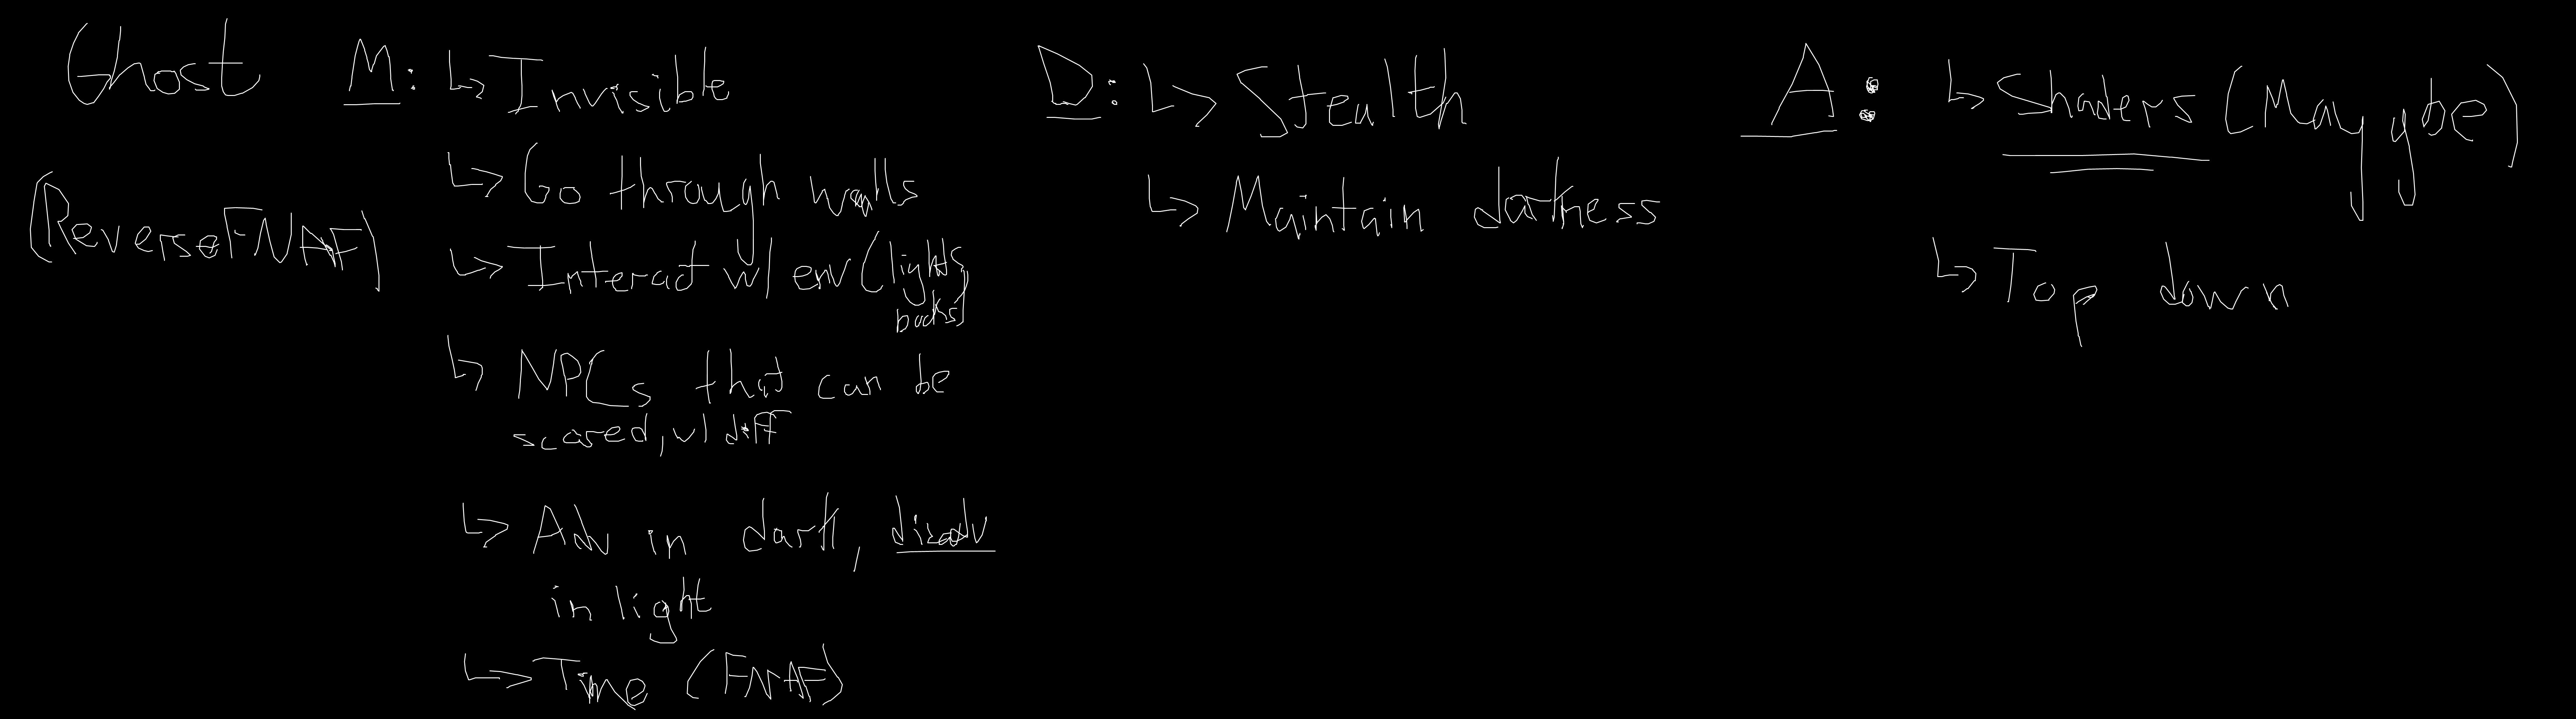 Ghost
(ReverseFNAF)
M: ↳ Invisible
↳ Go through walls
↳ Interact w/ env (lights,
books)
↳ NPCs that can be
scared, w/ diff
↳ Adv in dark, disadv
in light
↳ Time (FNAF)
D: ↳ Stealth
↳ Maintain darkness
A: ↳ Shaders (May ybe)
↳ Top down